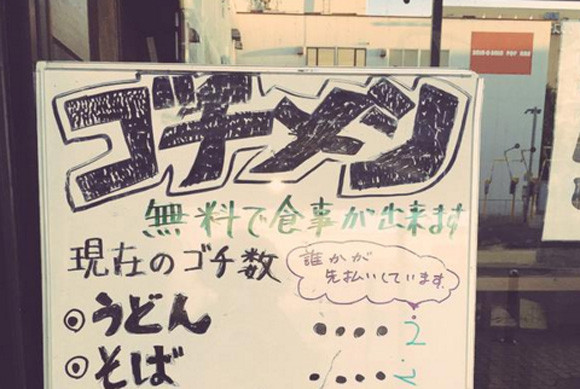 ゴチメン
無料で食事が出来ます
現在のゴチ数
誰かが
先払いしています。
◎うどん ・・・・ 2
◎そば ・・・・